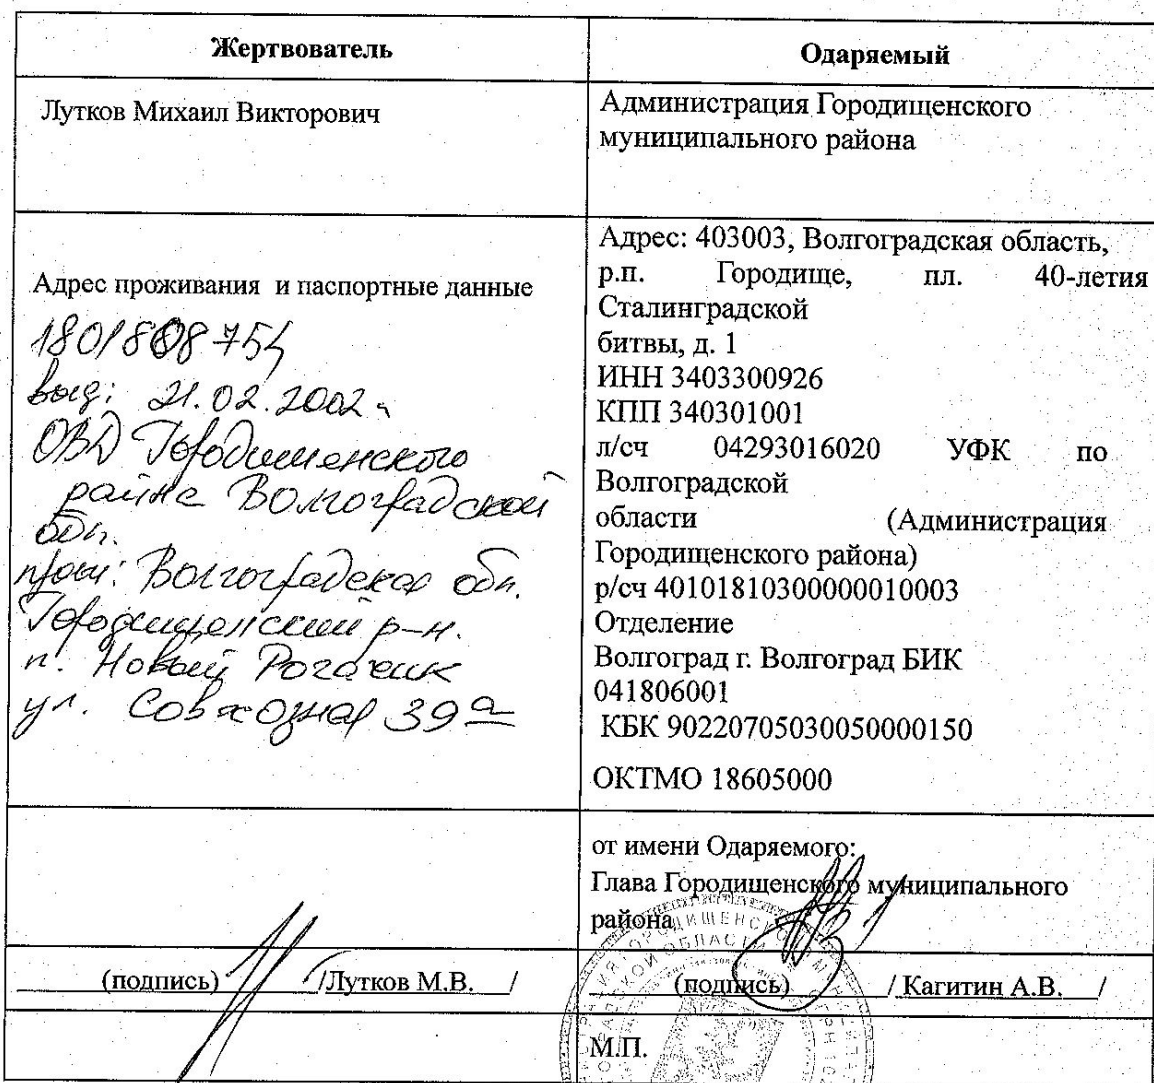 Жертвователь
Одаряемый
Лутков Михаил Викторович
Администрация Городищенского
муниципального района
Адрес проживания и паспортные данные
1801808754
выд: 21.02.2002 г
ОВД Городищенского
района Волгоградской
обл.
прож: Волгоградская обл.
Городищенский р-н.
п. Новый Рогачик
ул. Совхозная 39а
Адрес: 403003, Волгоградская область,
р.п. Городище, пл. 40-летия
Сталинградской
битвы, д. 1
ИНН 3403300926
КПП 340301001
л/сч 04293016020 УФК по
Волгоградской
области (Администрация
Городищенского района)
р/сч 40101810300000010003
Отделение
Волгоград г. Волгоград БИК
041806001
КБК 90220705030050000150
ОКТМО 18605000
от имени Одаряемого:
Глава Городищенского муниципального
района
(подпись) /Лутков М.В. /
(подпись) / Кагитин А.В. /
М.П.